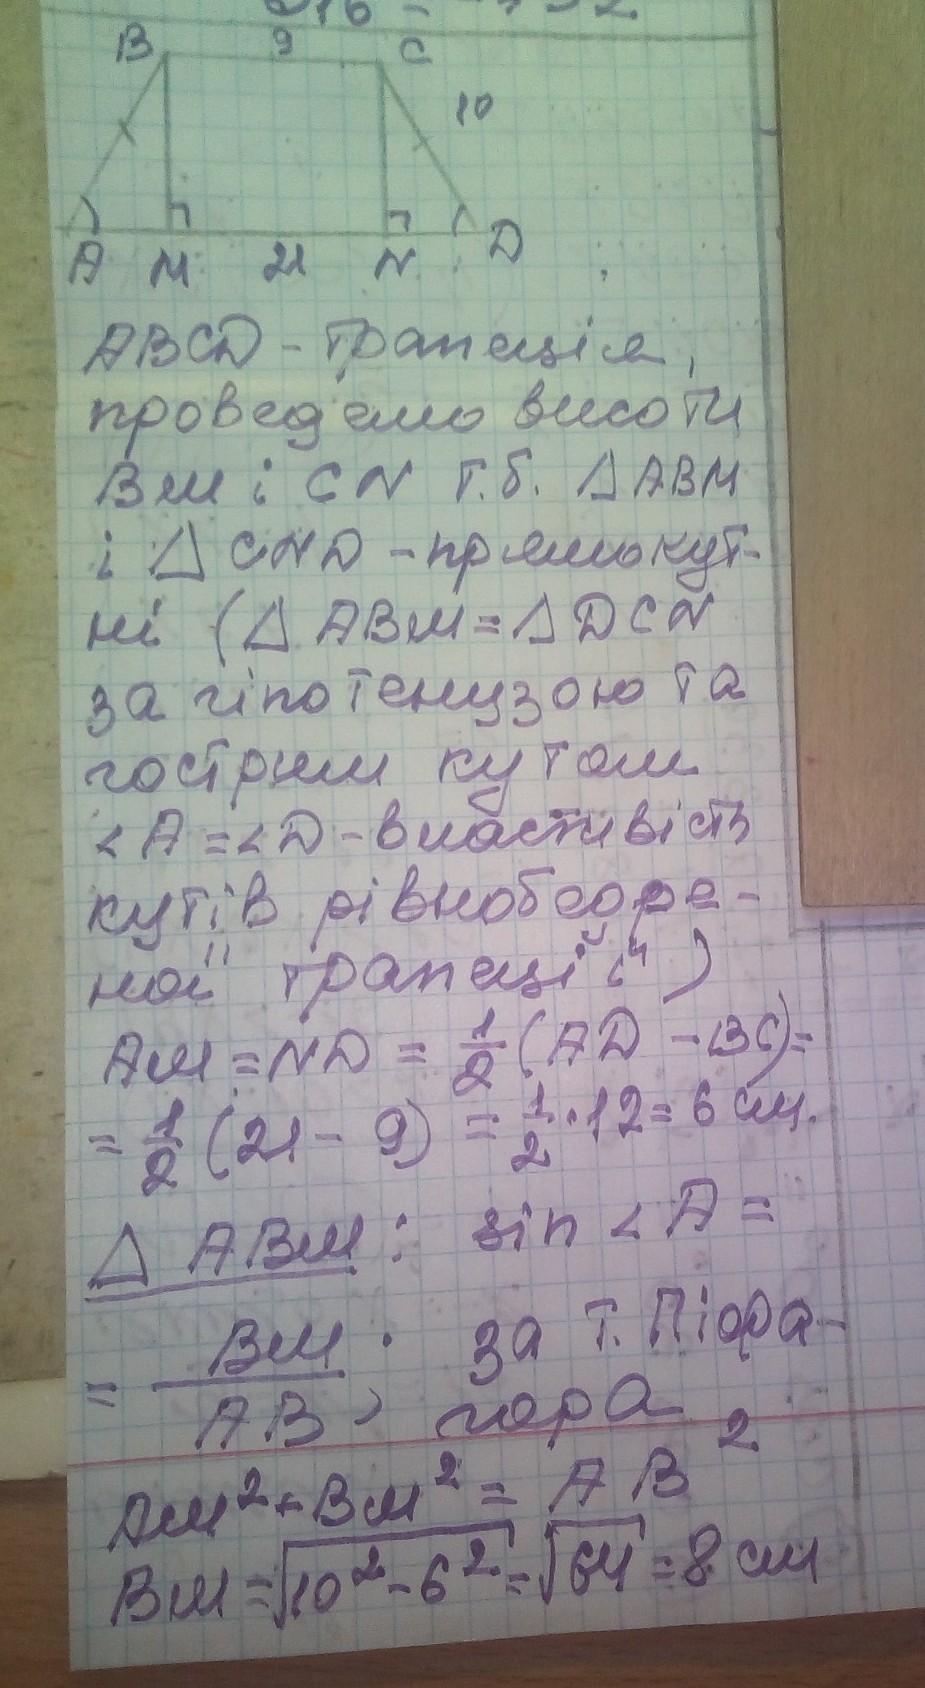 B 9 C
10
A M 21 N D
ABCD - трапеція,
проведемо висоти
BM і CN т.б. △ABM
і △CND - прямокут-
ні (△ABM = △DCN
за гіпотенузою та
гострим кутом
∠A = ∠D - властивість
кутів рівнобедре-
ної трапеції)
AM = ND = 1/2 (AD - BC) =
= 1/2 (21 - 9) = 1/2 · 12 = 6 см.
△ABM : sin ∠A =
= BM/AB ; за т. Піфа-
гора
AM² + BM² = AB²
BM = √10² - 6² = √64 = 8 см